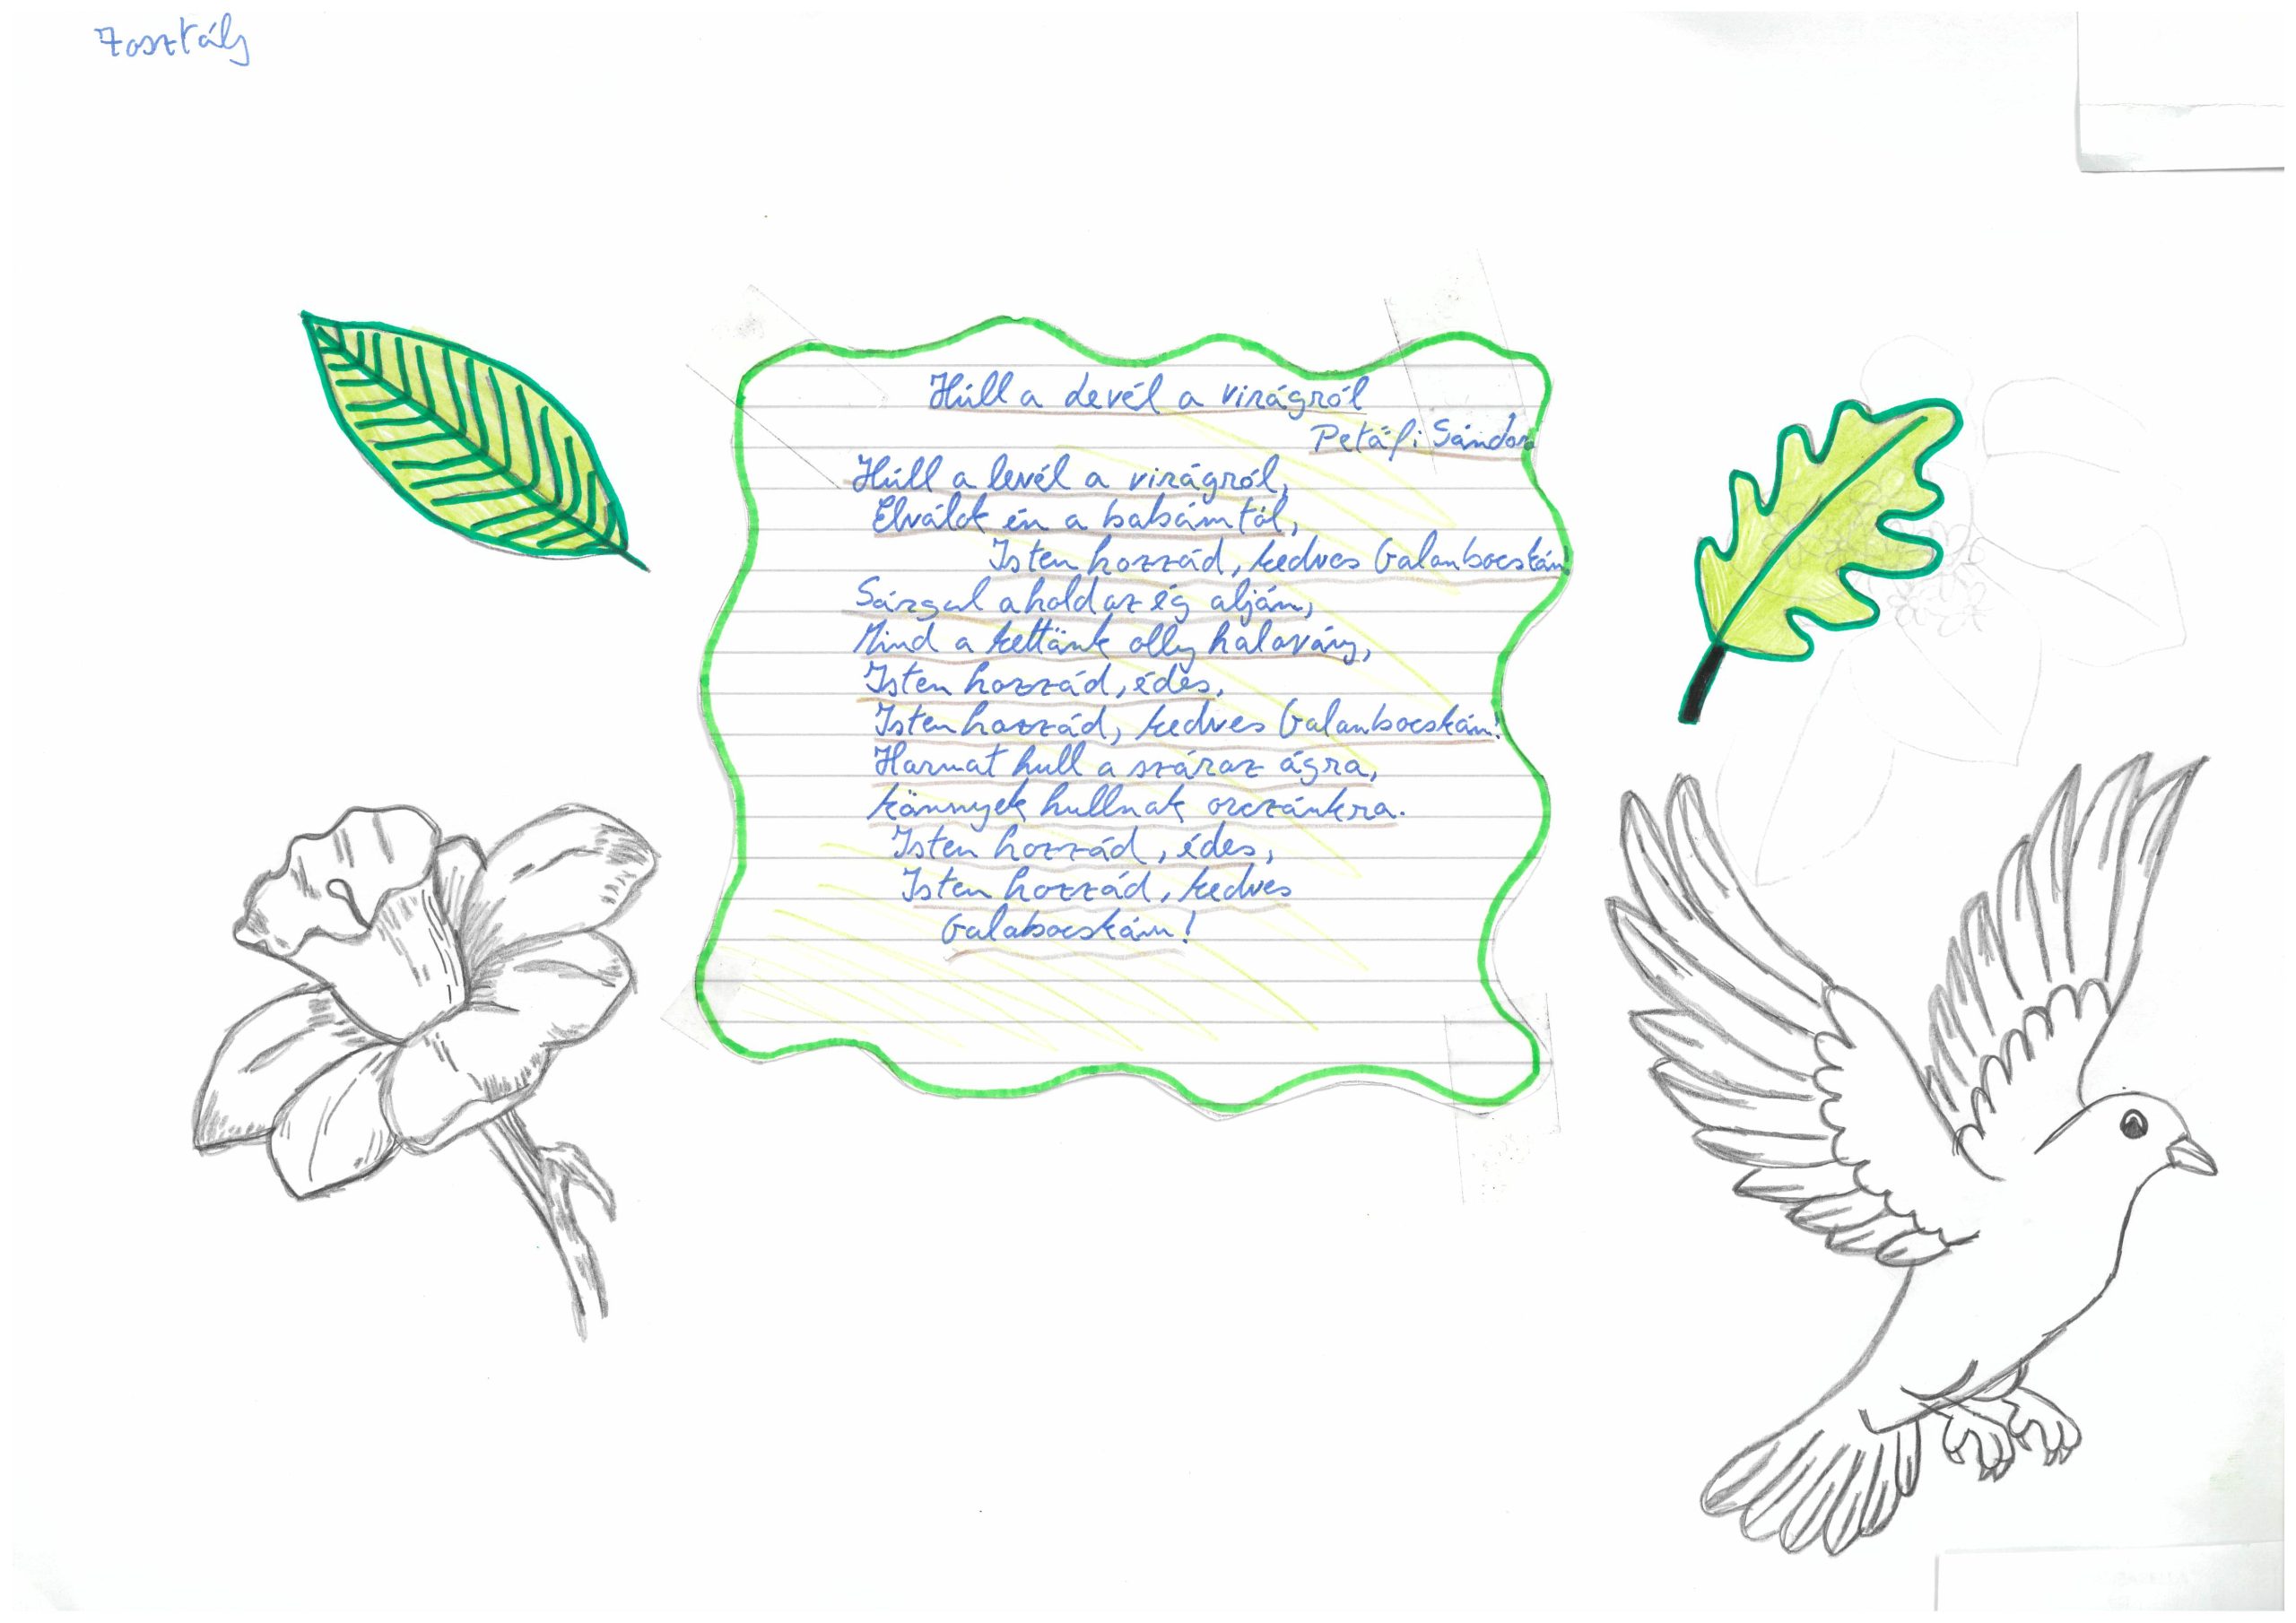 7osztály
Húll a levél a virágról
Petőfi Sándor
Húll a levél a virágról,
Elválok én a babámtól,
Isten hozzád, kedves Galambocskám
Sárgul a hold az ég alján,
Mind a kettőnk olly halovány,
Isten hozzád, édes,
Isten hozzád, kedves Galambocskám!
Harmat hull a száraz ágra,
könnyek hullnak orczánkra.
Isten hozzád, édes,
Isten hozzád, kedves
Galabocskám!